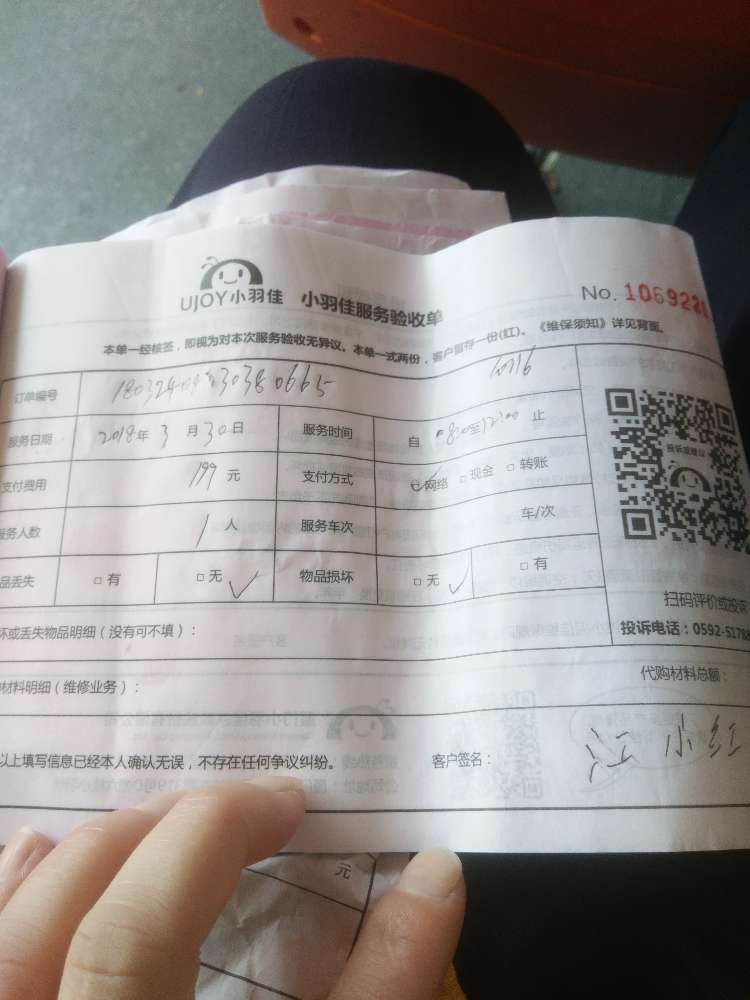 UJOY小羽佳 小羽佳服务验收单 No. 1069221
本单一经核签，即视为对本次服务验收无异议。本单一式两份，客户留存一份(红)。《维保须知》详见背面。
订单编号
服务日期 2018年 3月30日 服务时间 自 8:00至12:00 止
支付费用 199 元 支付方式 ☑网络 □现金 □转账
服务人数 1 人 服务车次 车/次
品丢失 □有 □无 ✓ 物品损坏 □无 ✓ □有
投诉或建议
扫码评价或投诉
投诉电话：0592-5178
坏或丢失物品明细（没有可不填）：
材料明细（维修业务）： 代购材料总额：
以上填写信息已经本人确认无误，不存在任何争议纠纷。 客户签名： 江小红
元